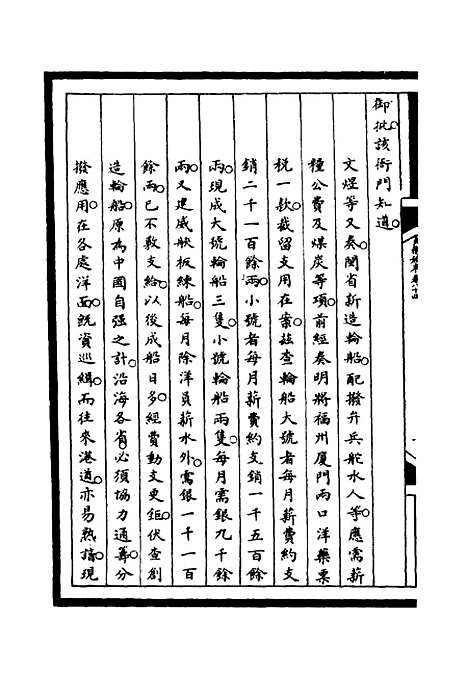 御批該衙門知道。
文煜等又奏。閩省新造輪船。配撥弁兵舵水人等。應需薪
糧公費及煤炭等項。前經奏明將福州廈門兩口洋藥票
稅一款。截留支用在案。茲查輪船大號者每月薪費約支
銷二千一百餘兩。小號者每月薪費約支銷一千五百餘
兩。現成大號輪船三隻。小號輪船兩隻。每月需銀九千餘
兩。又建威舤板練船。每月除洋員薪水外。需銀一千一百
餘兩。已不敷支給。以後成船日多。經費動支更鉅。伏查創
造輪船。原為中國自强之計。沿海各省。必須協力通籌。分
撥應用。在各處洋面。旣資巡緝。而往來港道。亦易熟諳。現